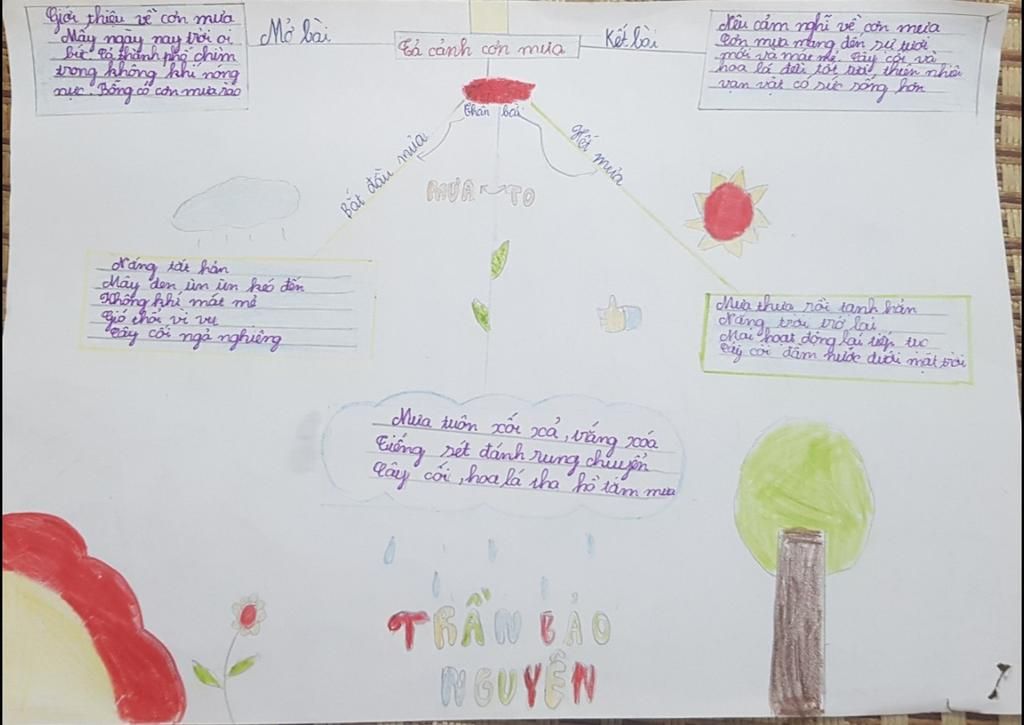 Giới thiệu về cơn mưa
Mấy ngày nay trời oi
bức. Cả thành phố chìm
trong không khí nóng
nực. Bỗng có cơn mưa rào
Mở bài
Tả cảnh cơn mưa
Kết bài
Nêu cảm nghĩ về cơn mưa
Cơn mưa mang đến sự tươi
mới và mát mẻ. Cây cối và
hoa lá đều tốt tươi, thiên nhiên
vạn vật có sức sống hơn
Thân bài
Bắt đầu mưa
Hết mưa
MƯA TO
Nắng tắt hẳn
Mây đen ùn ùn kéo đến
Không khí mát mẻ
Gió thổi vi vu
Cây cối ngả nghiêng
Mưa thưa rồi tạnh hẳn
Nắng trời trở lại
Mọi hoạt động lại tiếp tục
Cây cối đẫm nước dưới mặt trời
Mưa tuôn xối xả, trắng xóa
Tiếng sét đánh rung chuyển
Cây cối, hoa lá tha hồ tắm mưa
TRẦN BẢO
NGUYÊN